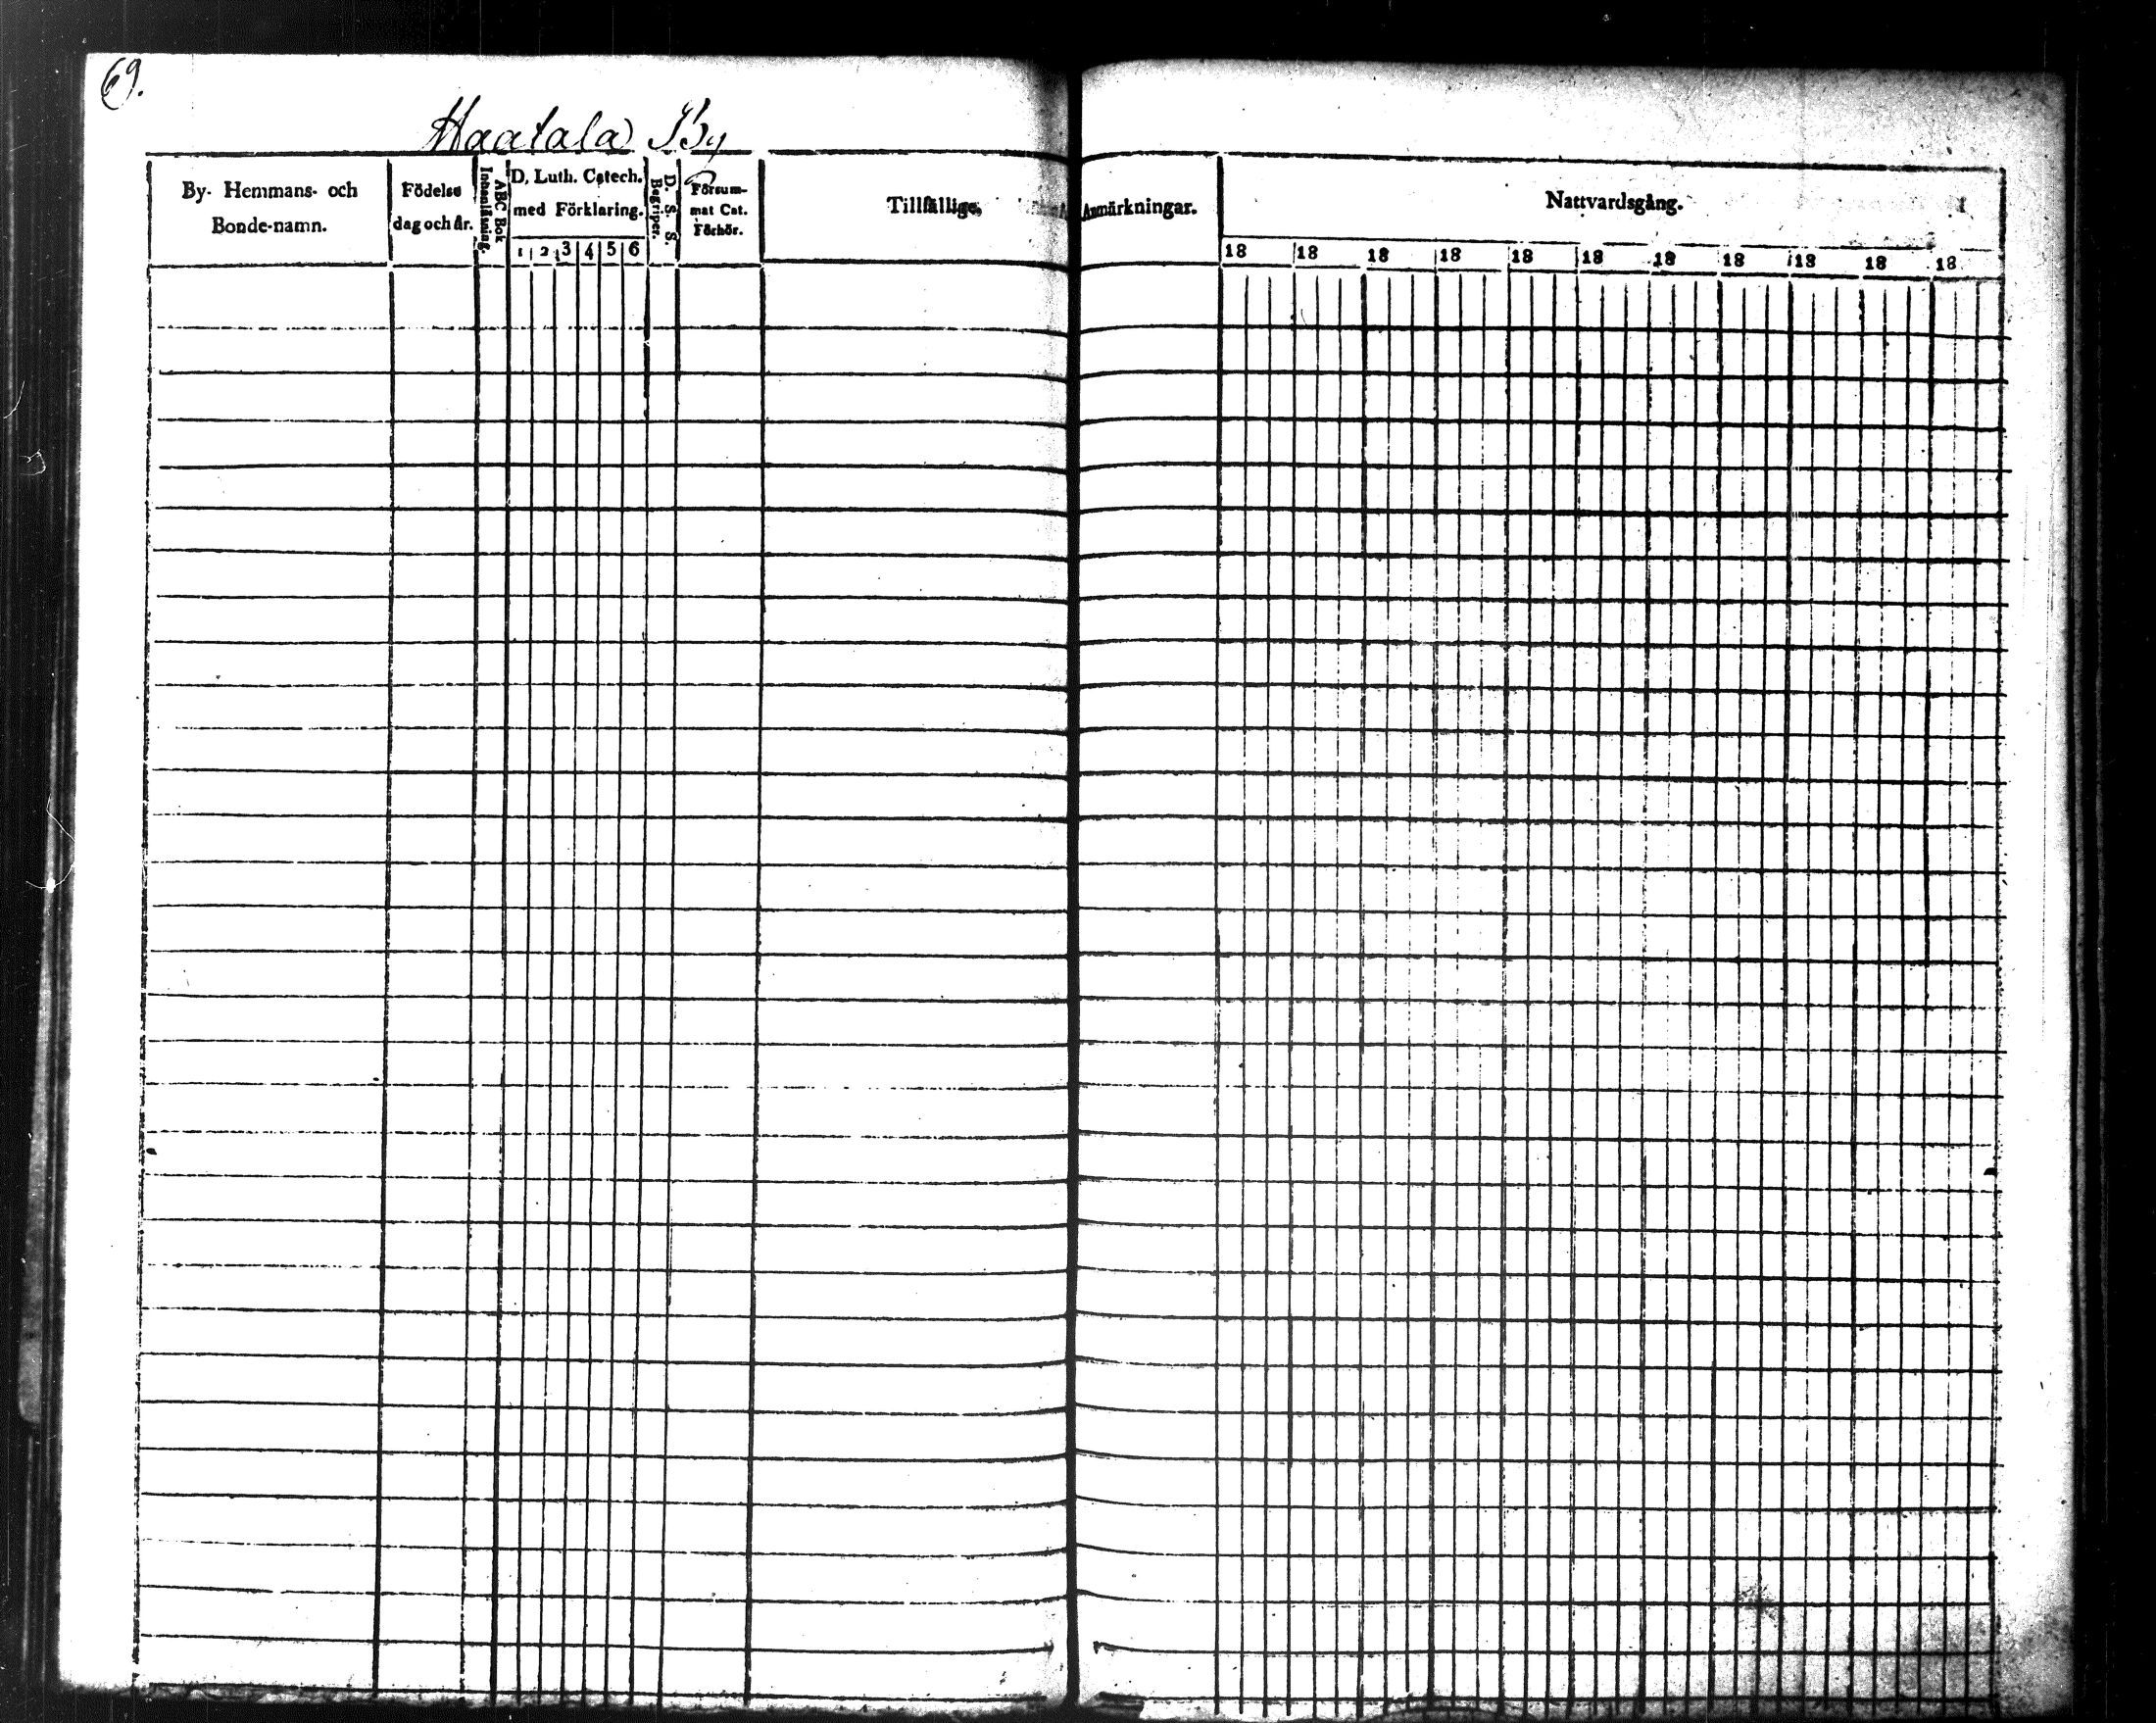 69.
Haatala By
By- Hemmans- och
Bonde-namn.
Födelse
dag och år.
ABC Bok
Innanläsning.
D. Luth. Catech.
med Förklaring.
1 2 3 4 5 6
D. S. S.
Begriper.
Försum-
mat Cat.
Förhör.
Tillfällige
Anmärkningar.
Nattvardsgång.
18 18 18 18 18 18 18 18 18 18 18